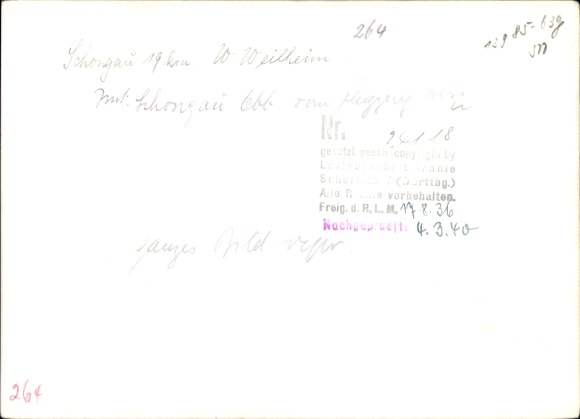 264
139 85-639
Schongau 19 km W Weilheim
Schongau Obb vom Flugzeug aus
Nr. 24118
gesetzl. gesch. copyright by
Luftbild Strähle
Schorndorf (Württbg.)
Alle Rechte vorbehalten.
Freig. d. R. L. M. 17.8.36
Nachgeprüft: 4.3.40
ganzes Bild
264